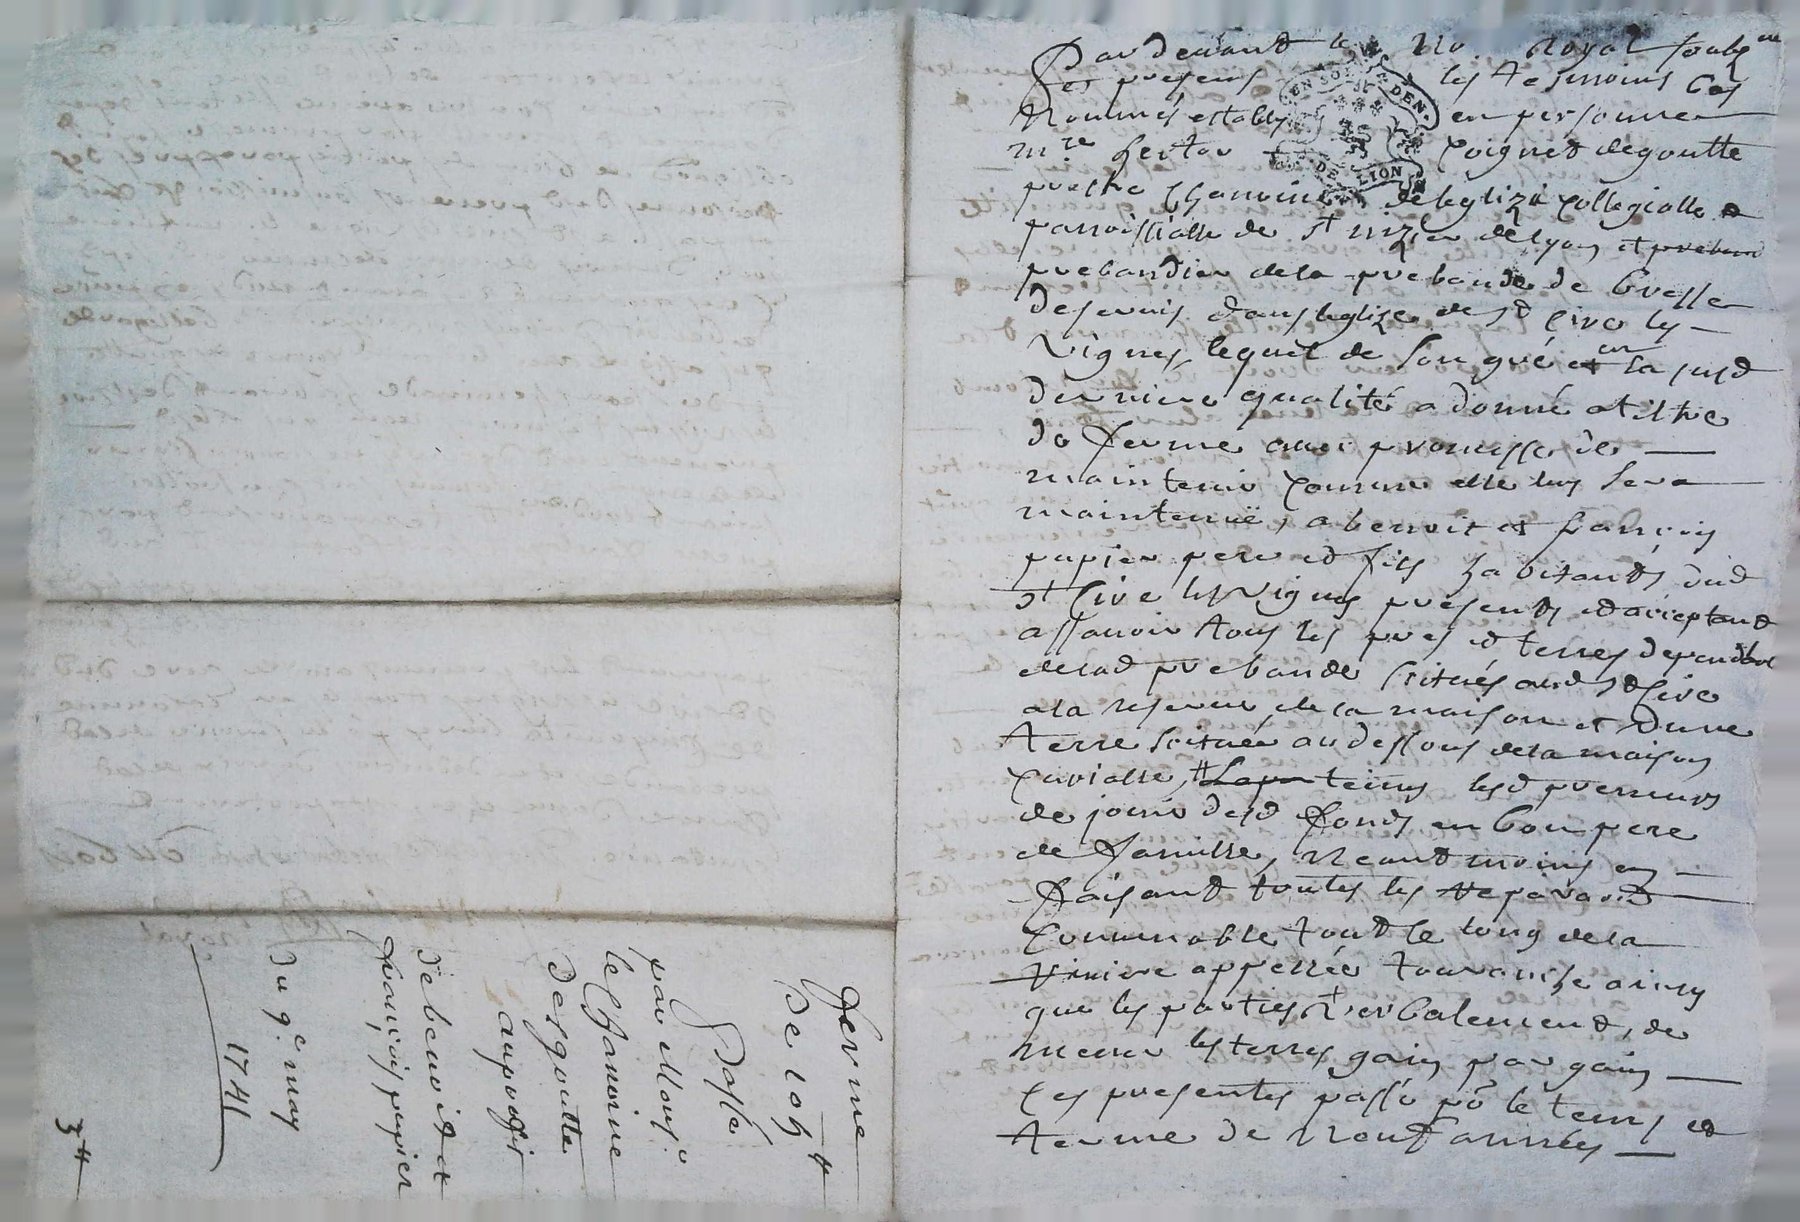 Par devant le No Royal soubz.né
Et presens les tesmoins bas
Nommés establi en personne
m.re hector Poignet degoutte
prestre Chanoine de leglize collegialle et
parroissialle de st nizier de lyon et preban
prebandier de la prebande de bresse
deservis dans leglize de st Cire les
Vignes, lequel de son gré et en la susd
derniere qualité a donné a tiltre
de ferme avec promesse de
maintenir comme elle luy sera
maintenuë, a benoit et françois
papier pere et fils habitants dud
st Cire les Vignes presents et acceptant
assavoir tous les prés et terres dependant
delad prebande scitués aud st Cire
a la reserve de la maison et d'une
terre scituée au dessous de la maison
curialle, tenus lesd preneurs
de jouir desd fonds en bon pere
de famille, Neantmoins en
faisant toutes les reparaons
Convenable tout le long de la
riviere appellée
que les parties verbalement, de
mener les terres gain par gain
Ces presentes passé po le tems et
terme de Neuf années
ferme
De 10h
Passée
par Mons.r
le Chanoine
Desgoutte
au profit
de benoit et
françois papier
du 9e may
1741
3#
EN SON DEN
DE LION